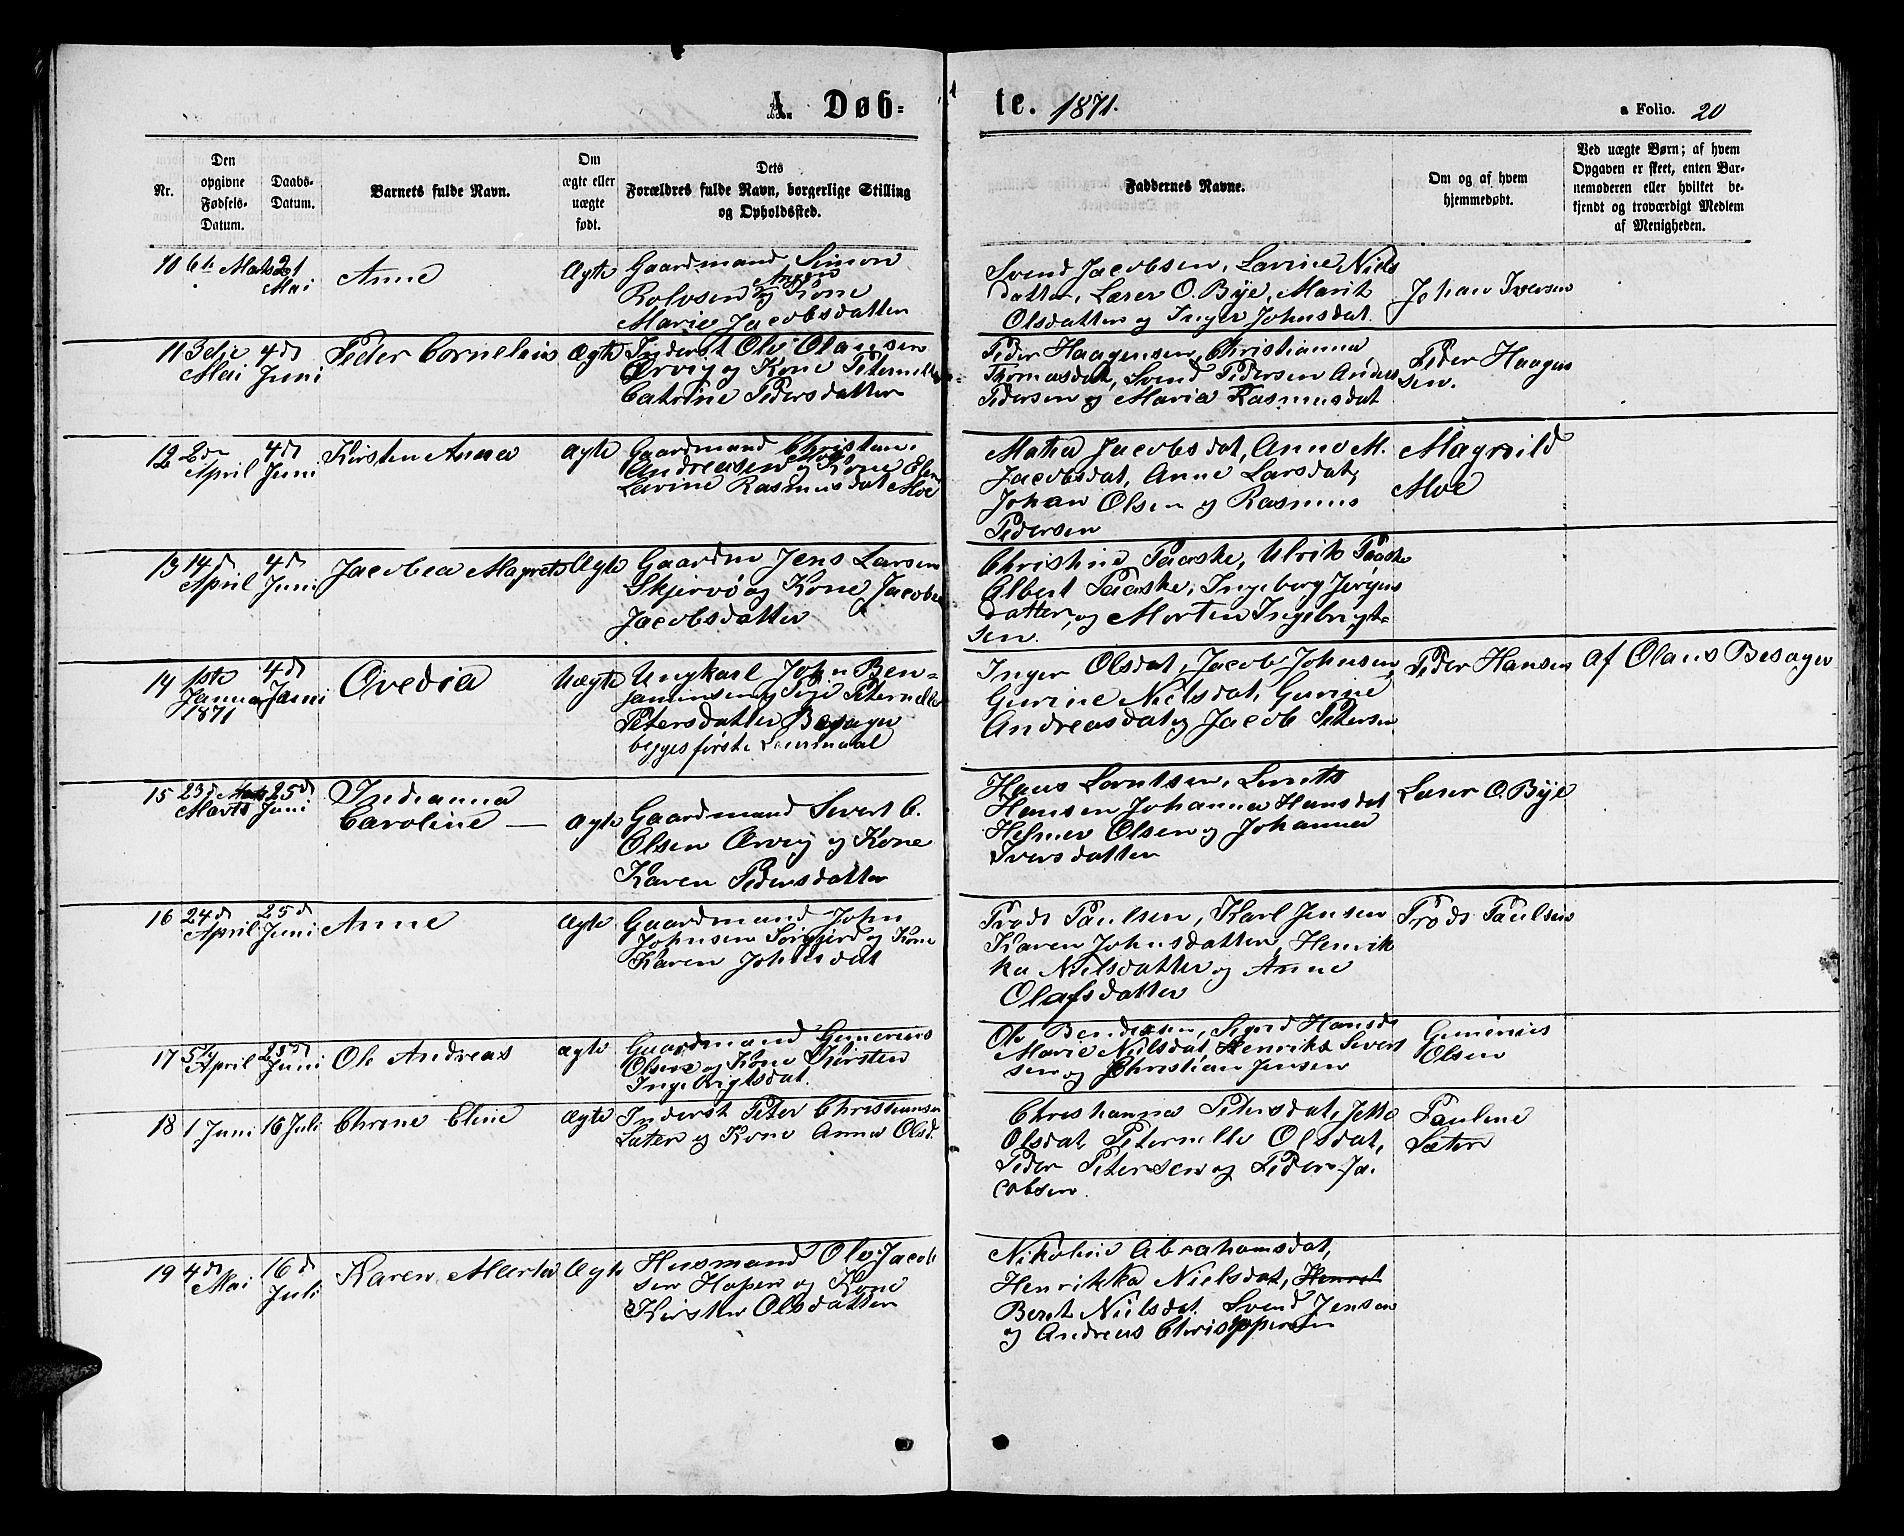 A. Døbte. 1871.
a Folio. 20
Nr.
Den opgivne Fødsels-Datum.
Daabs-Datum.
Barnets fulde Navn.
Om ægte eller uægte født.
Dets Forældres fulde Navn, borgerlige Stilling og Opholdssted.
Faddernes Navne.
Om og af hvem hjemmedøbt.
Ved uægte Børn; af hvem Opgaven er skeet, enten Barnemoderen eller hvilket bekjendt og troværdigt Medlem af Menigheden.
10 6te Marts 21 Mai Anne Ægte
Gaardmand Simon
Rolvsen og Kone
Marie Jacobsdatter
Svend Jacobsen, Lavine Niels
datter, Laser O. Bye, Marit
Olsdatter og Inger Johnsdat.
Johan Iversen
11 3die Mai 4de Juni Peder Cornelius Ægte
Inderst Ole Olausen
Ervig og Kone Peternelle
Catrine Pedersdatter
Peder Haagensen, Christianna
Thomasdat, Svend Pedersen Anders
Pedersen og Maria Rasmusdat
Peder Haagen
sen.
12 2den April 4de Juni Kirsten Anna Ægte
Gaardmand Christian
Andreasen og Kone Elen
Lavine Rasmusdat Moe
Matia Jacobsdat, Anne M.
Jacobsdat, Anne Larsdat,
Johan Olsen og Rasmus
Pedersen
Magnild
Moe
13 14de April 4de Juni Jacobea Magrete Ægte
Gaardm Jens Larsen
Skjervø og Kone Jacobea
Jacobsdatter
Christine Paaske, Ulrik Paaske
Albert Paaske, Ingeborg Jørgens
datter, og Morten Ingebrigt-
sen.
14 1ste Januar 1871 4de Juni Ovedia Uægte
Ungkarl John Ben-
jaminsen og Pige Peternelle
Petersdatter Besager
begges første Leiermaal
Inger Olsdat, Jacob Johnsen,
Gurine Nielsdat, Gurine
Andreasdat og Jacob Petersen
Peder Hansen
Af Olaus Besager
15 23de Marts 25de Juni Indianna
Caroline — Ægte
Gaardmand Sivert C.
Olsen Ervig og Kone
Karen Pedersdatter
Hans Lorntsen, Lorents
Hansen Johanna Hansdat
Helmer Olsen og Johanna
Iversdatter
Laser O. Bye
16 24de April 25de Juni Anne Ægte
Gaardmand John
Johnsen Sørgjerd og Kone
Karen Johnsdat
Trods Paulsen, Karl Jensen
Karen Johnsdatter, Henrik
ka Nielsdatter og Anne
Olafsdatter
Trods Paulsen
17 5te April 25de Juni Ole Andreas Ægte
Gaardmand Gunerius
Olsen og Kone Kirsten
Ingebrigtsdat.
Ole Bendixsen, Sigrid Hansd
Marie Nielsdat, Henrik Sivert
sen og Christian Jensen
Gunerius
Olsen
18 1 Juni 16 Juli Chrine Eline Ægte
Inderst Peter Christiansen
Sæter og Kone Anna Olsd.
Christianna Petersdat, Jette
Olsdat, Peternelle Olsdat,
Peder Petersen og Peder Ja-
cobsen.
Pauline
Sæter
19 4de Mai 16de Juli Karen Marta Ægte
Husmand Ole Jacob
sen Hopen og Kone
Kirsten Olsdatter
Nikoline Abrahamsdat,
Henrikka Nielsdat,
Beret Nielsdat. Svend Jensen
og Andreas Christoppersen